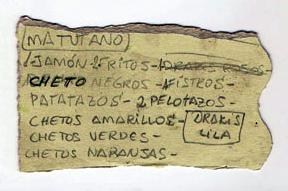 MATUTANO
1 JAMÓN - 2 FRITOS - 1 DRAKIS ROJOS
CHETO NEGROS - 1 FISTROS -
PATATAZOS - 2 PELOTAZOS -
CHETOS AMARILLOS - DRAKIS LILA
CHETOS VERDES -
CHETOS NARANJAS -